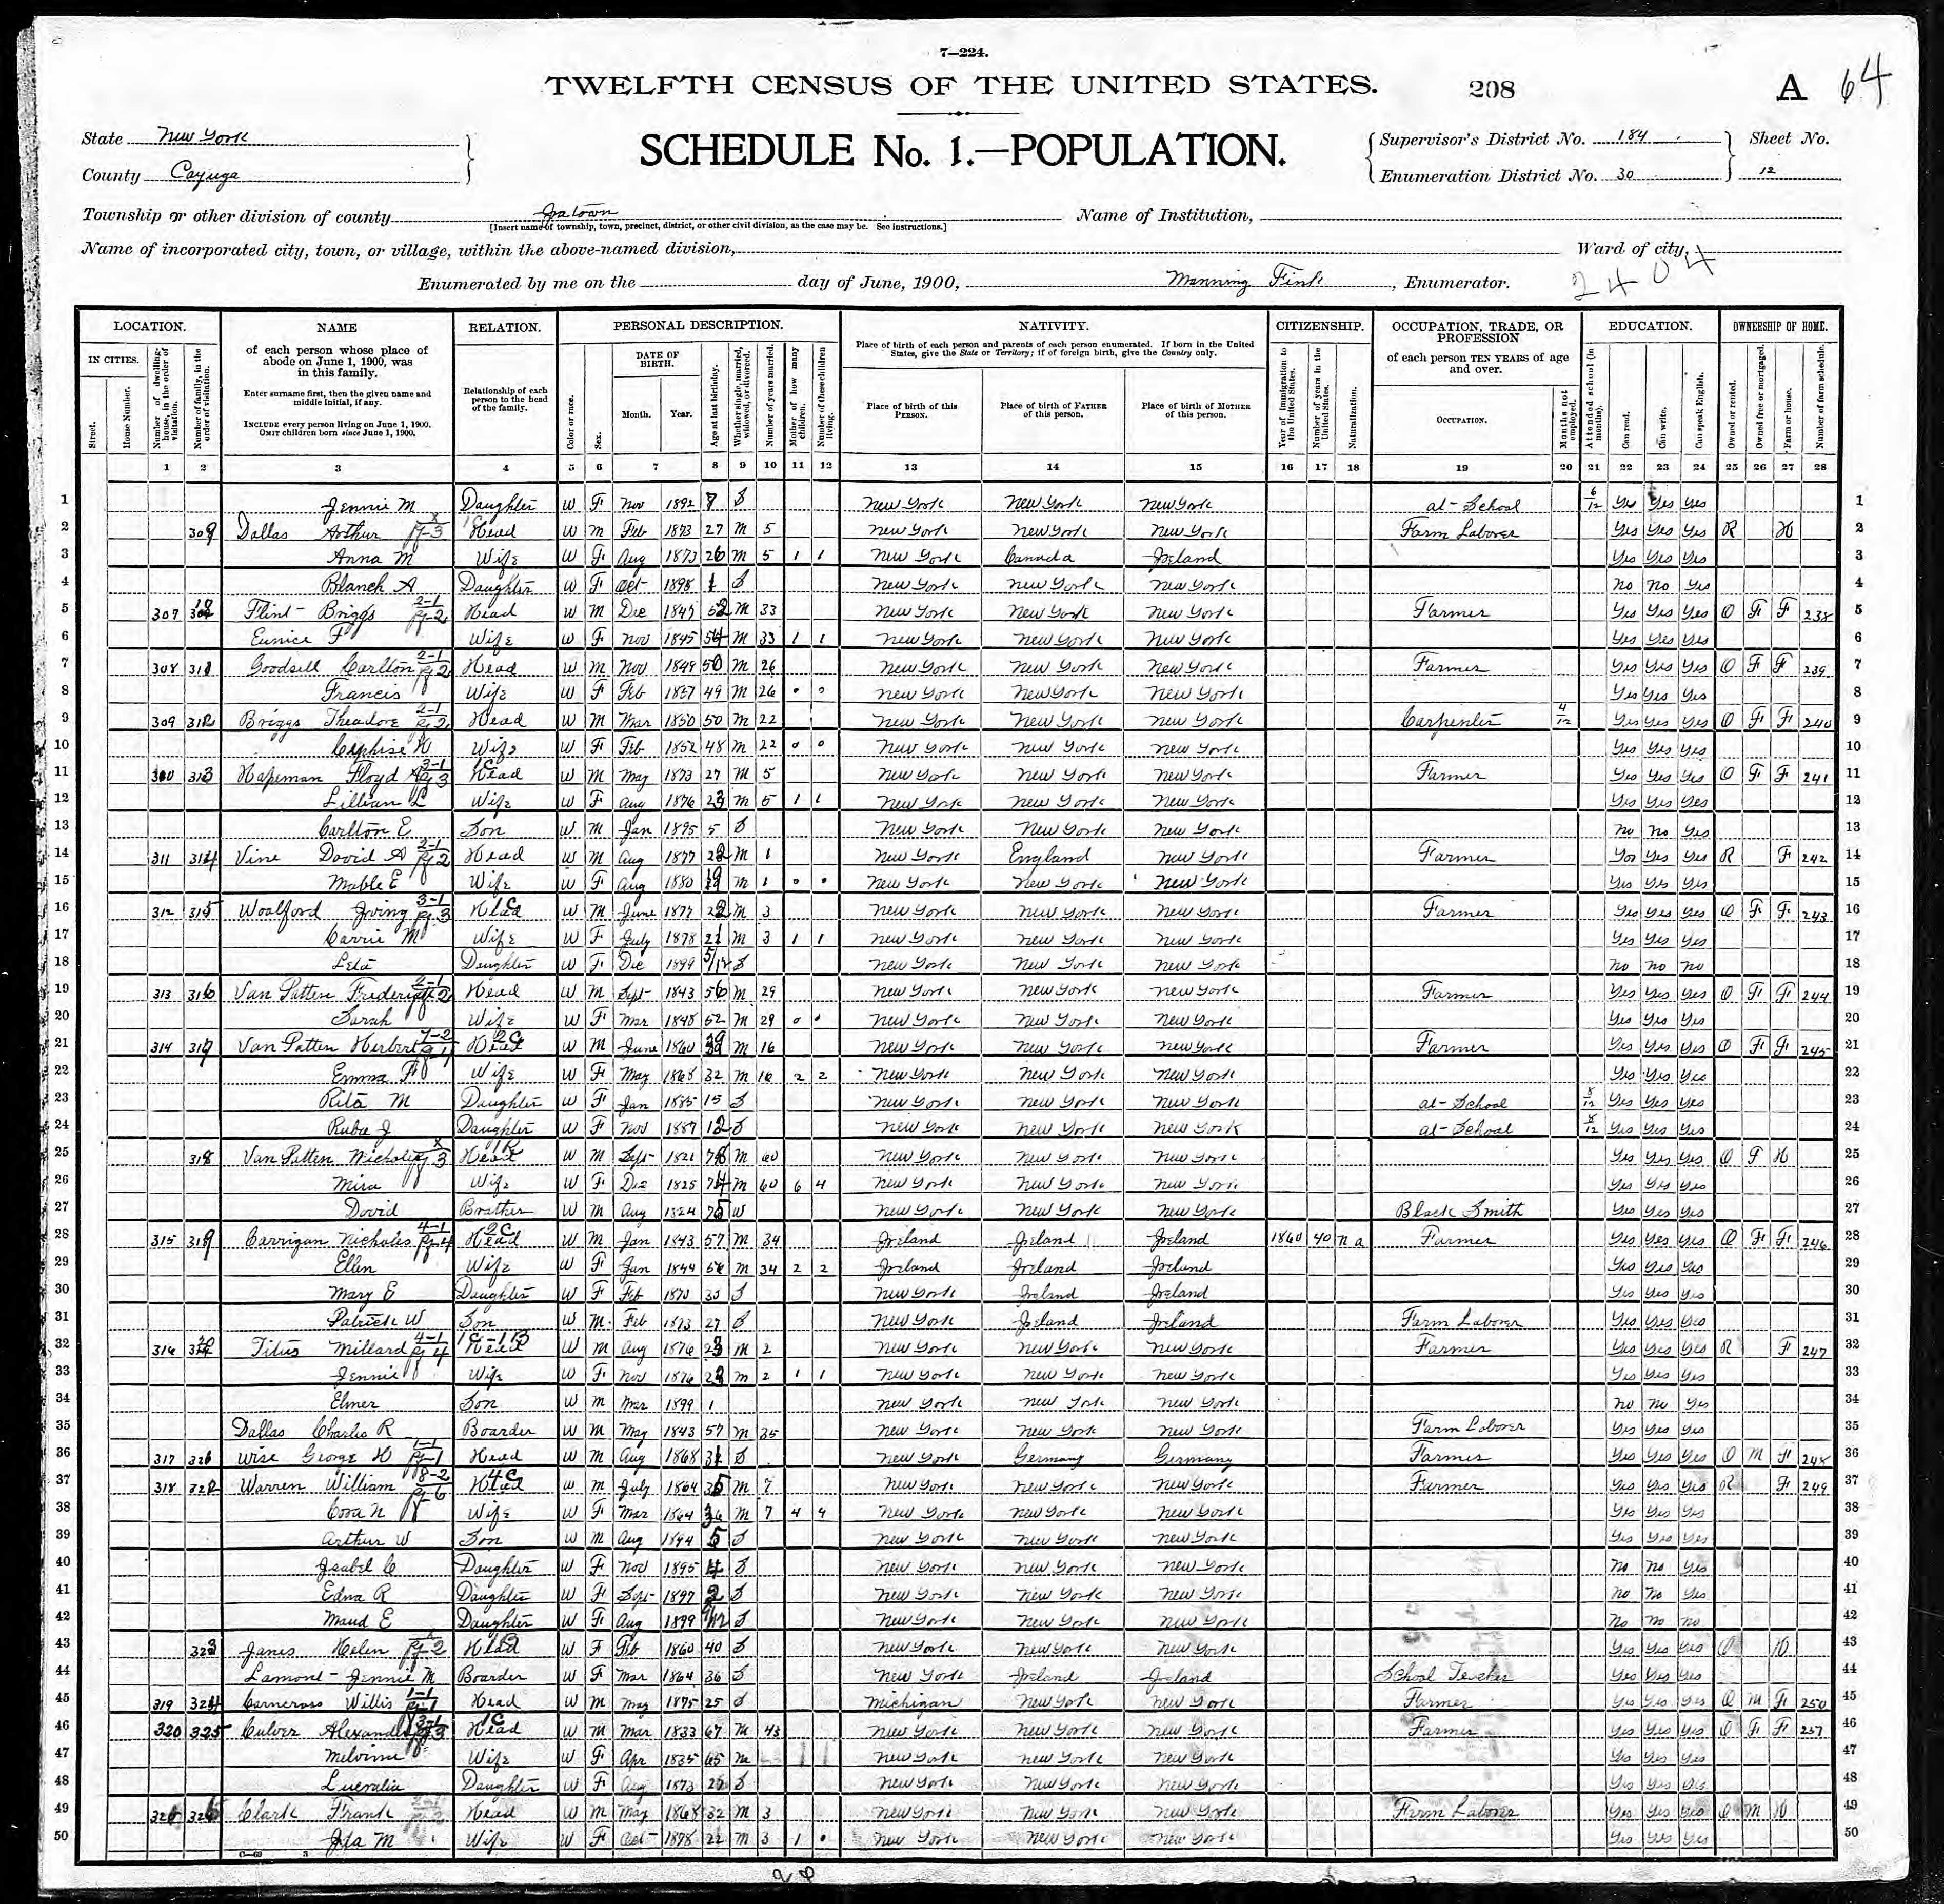 7—224.
TWELFTH CENSUS OF THE UNITED STATES.
208
A
64
State New York
County Cayuga
SCHEDULE No. 1.—POPULATION.
Supervisor's District No. 184
Enumeration District No. 30
Sheet No.
12
Township or other division of county Ira town
[Insert name of township, town, precinct, district, or other civil division, as the case may be. See instructions.]
Name of Institution,
Name of incorporated city, town, or village, within the above-named division,
Ward of city,
Enumerated by me on the day of June, 1900, Manning Fink, Enumerator.
2404
LOCATION. NAME RELATION. PERSONAL DESCRIPTION. NATIVITY. CITIZENSHIP. OCCUPATION, TRADE, OR PROFESSION EDUCATION. OWNERSHIP OF HOME.
IN CITIES. Street. House Number. Number of dwelling-house, in the order of visitation. Number of family, in the order of visitation.
of each person whose place of abode on June 1, 1900, was in this family.
Enter surname first, then the given name and middle initial, if any.
INCLUDE every person living on June 1, 1900. OMIT children born since June 1, 1900.
Relationship of each person to the head of the family.
Color or race. Sex. DATE OF BIRTH. Month. Year. Age at last birthday. Whether single, married, widowed, or divorced. Number of years married. Mother of how many children. Number of these children living.
Place of birth of each person and parents of each person enumerated. If born in the United States, give the State or Territory; if of foreign birth, give the Country only.
Place of birth of this PERSON. Place of birth of FATHER of this person. Place of birth of MOTHER of this person.
Year of immigration to the United States. Number of years in the United States. Naturalization.
of each person TEN YEARS of age and over.
OCCUPATION. Months not employed.
Attended school (in months). Can read. Can write. Can speak English.
Owned or rented. Owned free or mortgaged. Farm or house. Number of farm schedule.
1 2 3 4 5 6 7 8 9 10 11 12 13 14 15 16 17 18 19 20 21 22 23 24 25 26 27 28
1 Jennie M Daughter W F Nov 1892 7 S New York New York New York at School 6/12 Yes Yes Yes 1
2 309 Dallas Arthur Head W M Feb 1873 27 M 5 New York New York New York Farm Laborer Yes Yes Yes R H 2
3 Anna M Wife W F Aug 1873 26 M 5 1 1 New York Canada Ireland Yes Yes Yes 3
4 Blanch A Daughter W F Oct 1898 1 S New York New York New York no no Yes 4
5 307 Flint Briggs Head W M Dec 1847 52 M 33 New York New York New York Farmer Yes Yes Yes O F F 238 5
6 Eunice F Wife W F Nov 1845 54 M 33 1 1 New York New York New York Yes Yes Yes 6
7 308 311 Goodsell Carlton Head W M Nov 1849 50 M 26 New York New York New York Farmer Yes Yes Yes O F F 239 7
8 Francis Wife W F Feb 49 M 26 0 0 New York New York New York Yes Yes Yes 8
9 309 312 Briggs Theadore Head W M Mar 1850 50 M 22 New York New York New York Carpenter 4/12 Yes Yes Yes O F F 240 9
10 Wife W F Feb 1852 48 M 22 0 0 New York New York New York Yes Yes Yes 10
11 313 Hapeman Floyd Head W M May 1873 27 M 5 New York New York New York Farmer Yes Yes Yes O F F 241 11
12 Lillian L Wife W F Aug 1876 23 M 5 1 1 New York New York New York Yes Yes Yes 12
13 Carlton E Son W M Jan 1895 5 S New York New York New York no no Yes 13
14 311 314 Vine David A Head W M Aug 1877 22 M 1 New York England New York Farmer Yes Yes Yes R F 242 14
15 Mable E Wife W F Aug 1880 19 M 1 0 0 New York New York New York Yes Yes Yes 15
16 312 315 Woolford Irving Head W M June 1877 22 M 3 New York New York New York Farmer Yes Yes Yes O F F 243 16
17 Carrie M Wife W F July 1878 21 M 3 1 1 New York New York New York Yes Yes Yes 17
18 Leta Daughter W F Dec 1899 5/12 S New York New York New York no no no 18
19 313 316 Van Patten Frederick Head W M Sept 1843 56 M 29 New York New York New York Farmer Yes Yes Yes O F F 244 19
20 Sarah Wife W F Mar 1848 52 M 29 0 0 New York New York New York Yes Yes Yes 20
21 314 317 Van Patten Herbert Head W M June 1860 39 M 16 New York New York New York Farmer Yes Yes Yes O F F 245 21
22 Emma F Wife W F May 1868 32 M 16 2 2 New York New York New York Yes Yes Yes 22
23 Rita M Daughter W F Jan 1885 15 S New York New York New York at School 8/12 Yes Yes Yes 23
24 Ruba J Daughter W F Nov 1887 12 S New York New York New York at School 8/12 Yes Yes Yes 24
25 318 Van Patten Nicholas Head W M Sept 1821 78 M 60 New York New York New York Yes Yes Yes O F H 25
26 Mira Wife W F Dec 1825 74 M 60 6 4 New York New York New York Yes Yes Yes 26
27 David Brother W M Aug 1824 75 W New York New York New York Black Smith Yes Yes Yes 27
28 315 319 Carrigan Nicholas Head W M Jan 1843 57 M 34 Ireland Ireland Ireland 1860 40 na Farmer Yes Yes Yes O F F 246 28
29 Ellen Wife W F Jan 1844 56 M 34 2 2 Ireland Ireland Ireland Yes Yes Yes 29
30 Mary E Daughter W F Feb 1870 30 S New York Ireland Ireland Yes Yes Yes 30
31 Patrick W Son W M Feb 1873 27 S New York Ireland Ireland Farm Laborer Yes Yes Yes 31
32 316 Titus Millard Head W M Aug 1876 23 M 2 New York New York New York Farmer Yes Yes Yes R F 247 32
33 Jennie Wife W F Nov 1876 23 M 2 1 1 New York New York New York Yes Yes Yes 33
34 Elmer Son W M Mar 1899 1 New York New York New York no no Yes 34
35 Dallas Charles R Boarder W M May 1843 57 M 35 New York New York New York Farm Laborer Yes Yes Yes 35
36 317 321 Wise George H Head W M Aug 1868 31 S New York Germany Germany Farmer Yes Yes Yes O M F 248 36
37 318 322 Warren William Head W M July 1864 35 M 7 New York New York New York Farmer Yes Yes Yes R F 249 37
38 Cora N Wife W F Mar 1864 36 M 7 4 4 New York New York New York Yes Yes Yes 38
39 Arthur W Son W M Aug 1894 5 S New York New York New York Yes Yes Yes 39
40 Isabel C Daughter W F Nov 1895 4 S New York New York New York no no Yes 40
41 Edna R Daughter W F Sept 1897 2 S New York New York New York no no Yes 41
42 Maud E Daughter W F Aug 1899 9/12 S New York New York New York no no no 42
43 323 Janes Helen Head W F Feb 1860 40 S New York New York New York Yes Yes Yes O H 43
44 Lamond Jennie M Boarder W F Mar 1864 36 S New York Ireland Ireland School Teacher Yes Yes Yes 44
45 319 324 Carncross Willis Head W M May 1875 25 S Michigan New York New York Farmer Yes Yes Yes O M F 250 45
46 320 325 Culver Alexander Head W M Mar 1833 67 M 43 New York New York New York Farmer Yes Yes Yes O F F 46
47 Wife W F Apr 1835 65 M New York New York New York Yes Yes Yes 47
48 Daughter W F Aug 1873 26 S New York New York New York Yes Yes Yes 48
49 326 Clark Frank Head W M May 1868 32 M 3 New York New York New York Farm Laborer Yes Yes Yes O M H 49
50 Ida M Wife W F Oct 1878 M 3 1 0 New York New York New York Yes Yes Yes 50